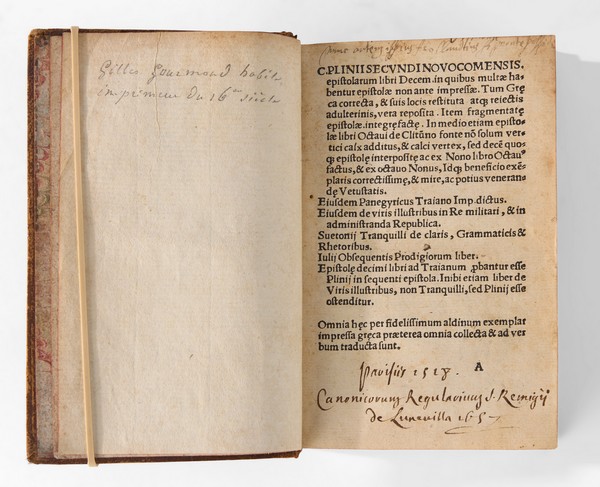 Gilles Gourmond habile
imprimeur du 16me siècle
C. PLINII SECVNDI NOVOCOMENSIS.
epistolarum libri Decem. in quibus multæ ha-
bentur epistolæ non ante impressæ. Tum Grę
ca correcta, & suis locis restituta atq; reiectis
adulterinis, vera reposita. Item fragmentatę
epistolæ. integrę factę. In medio etiam episto-
læ libri Octaui de Clitūno fonte nō solum ver-
tici calx additus, & calci vertex, sed decē quo-
q; epistolę interpositę ac ex Nono libro Octau⁹
factus, & ex octauo Nonus, Idq; beneficio exē-
plaris correctissimę, & mirę, ac potius veneran-
dę Vetustatis.
Eiusdem Panegyricus Traiano Imp. dictus.
Eiusdem de viris illustribus in Re militari, & in
administranda Republica.
Suetonij Tranquilli de claris, Grammaticis &
Rhetoribus.
Iulij Obsequentis Prodigiorum liber.
Epistolę decimi libri ad Traianum ꝓbantur esse
Plinij in sequenti epistola. Inibi etiam liber de
Viris illustribus, non Tranquilli, sed Plinij esse
ostenditur.
Omnia hęc per fidelissimum aldinum exemplar
impressa gręca præterea omnia collecta & ad ver
bum traducta sunt.
A
Parisiis 1518.
Canonicorum Regularium S. Remigij
de Lunavilla